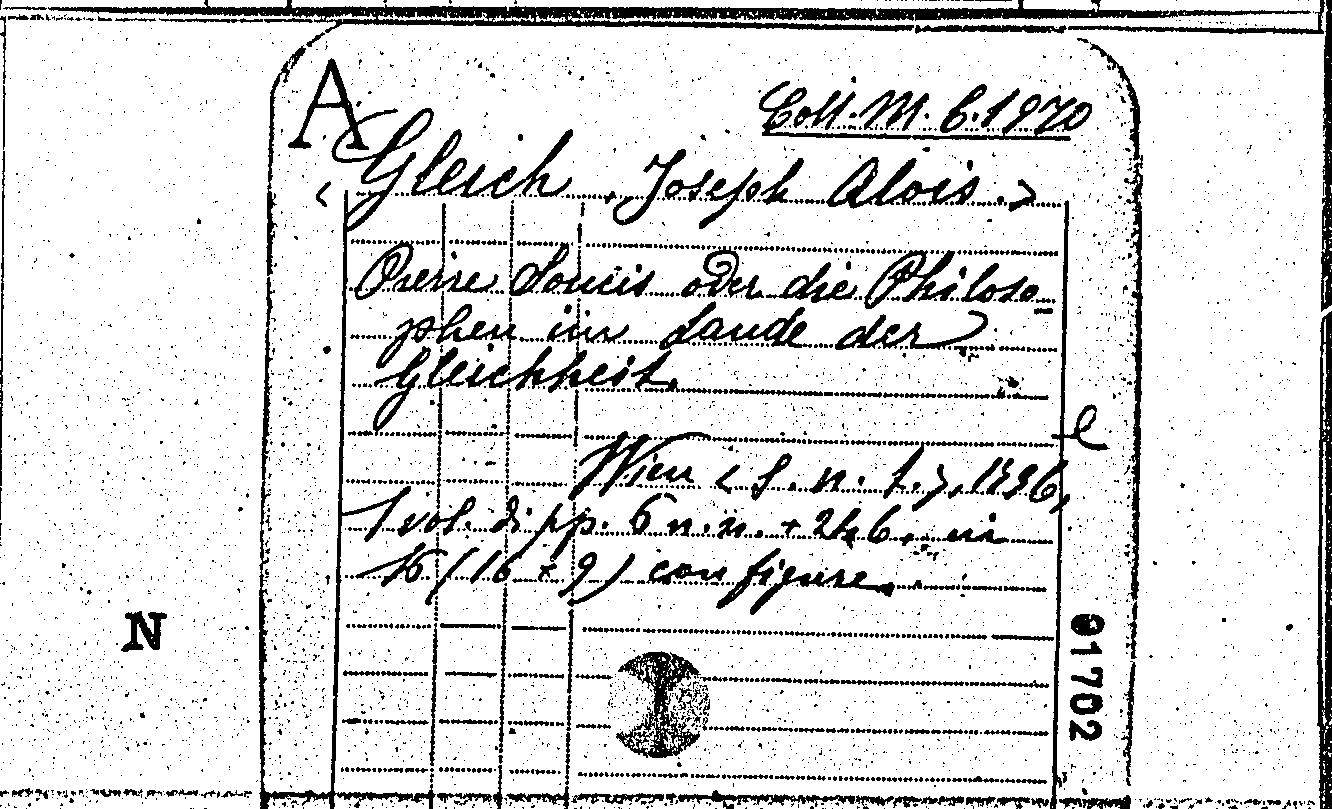 A
Coll. M. 6. 1970
< Gleich, Joseph Alois. >
Pierre Louis oder die Philoso-
phen im Lande der
Gleichheit.
e
Wien < S. n. t. >, 1796,
1 vol. di pp. 6 n.n. + 246, in
16 (16 + 9) con figure.
N
01702